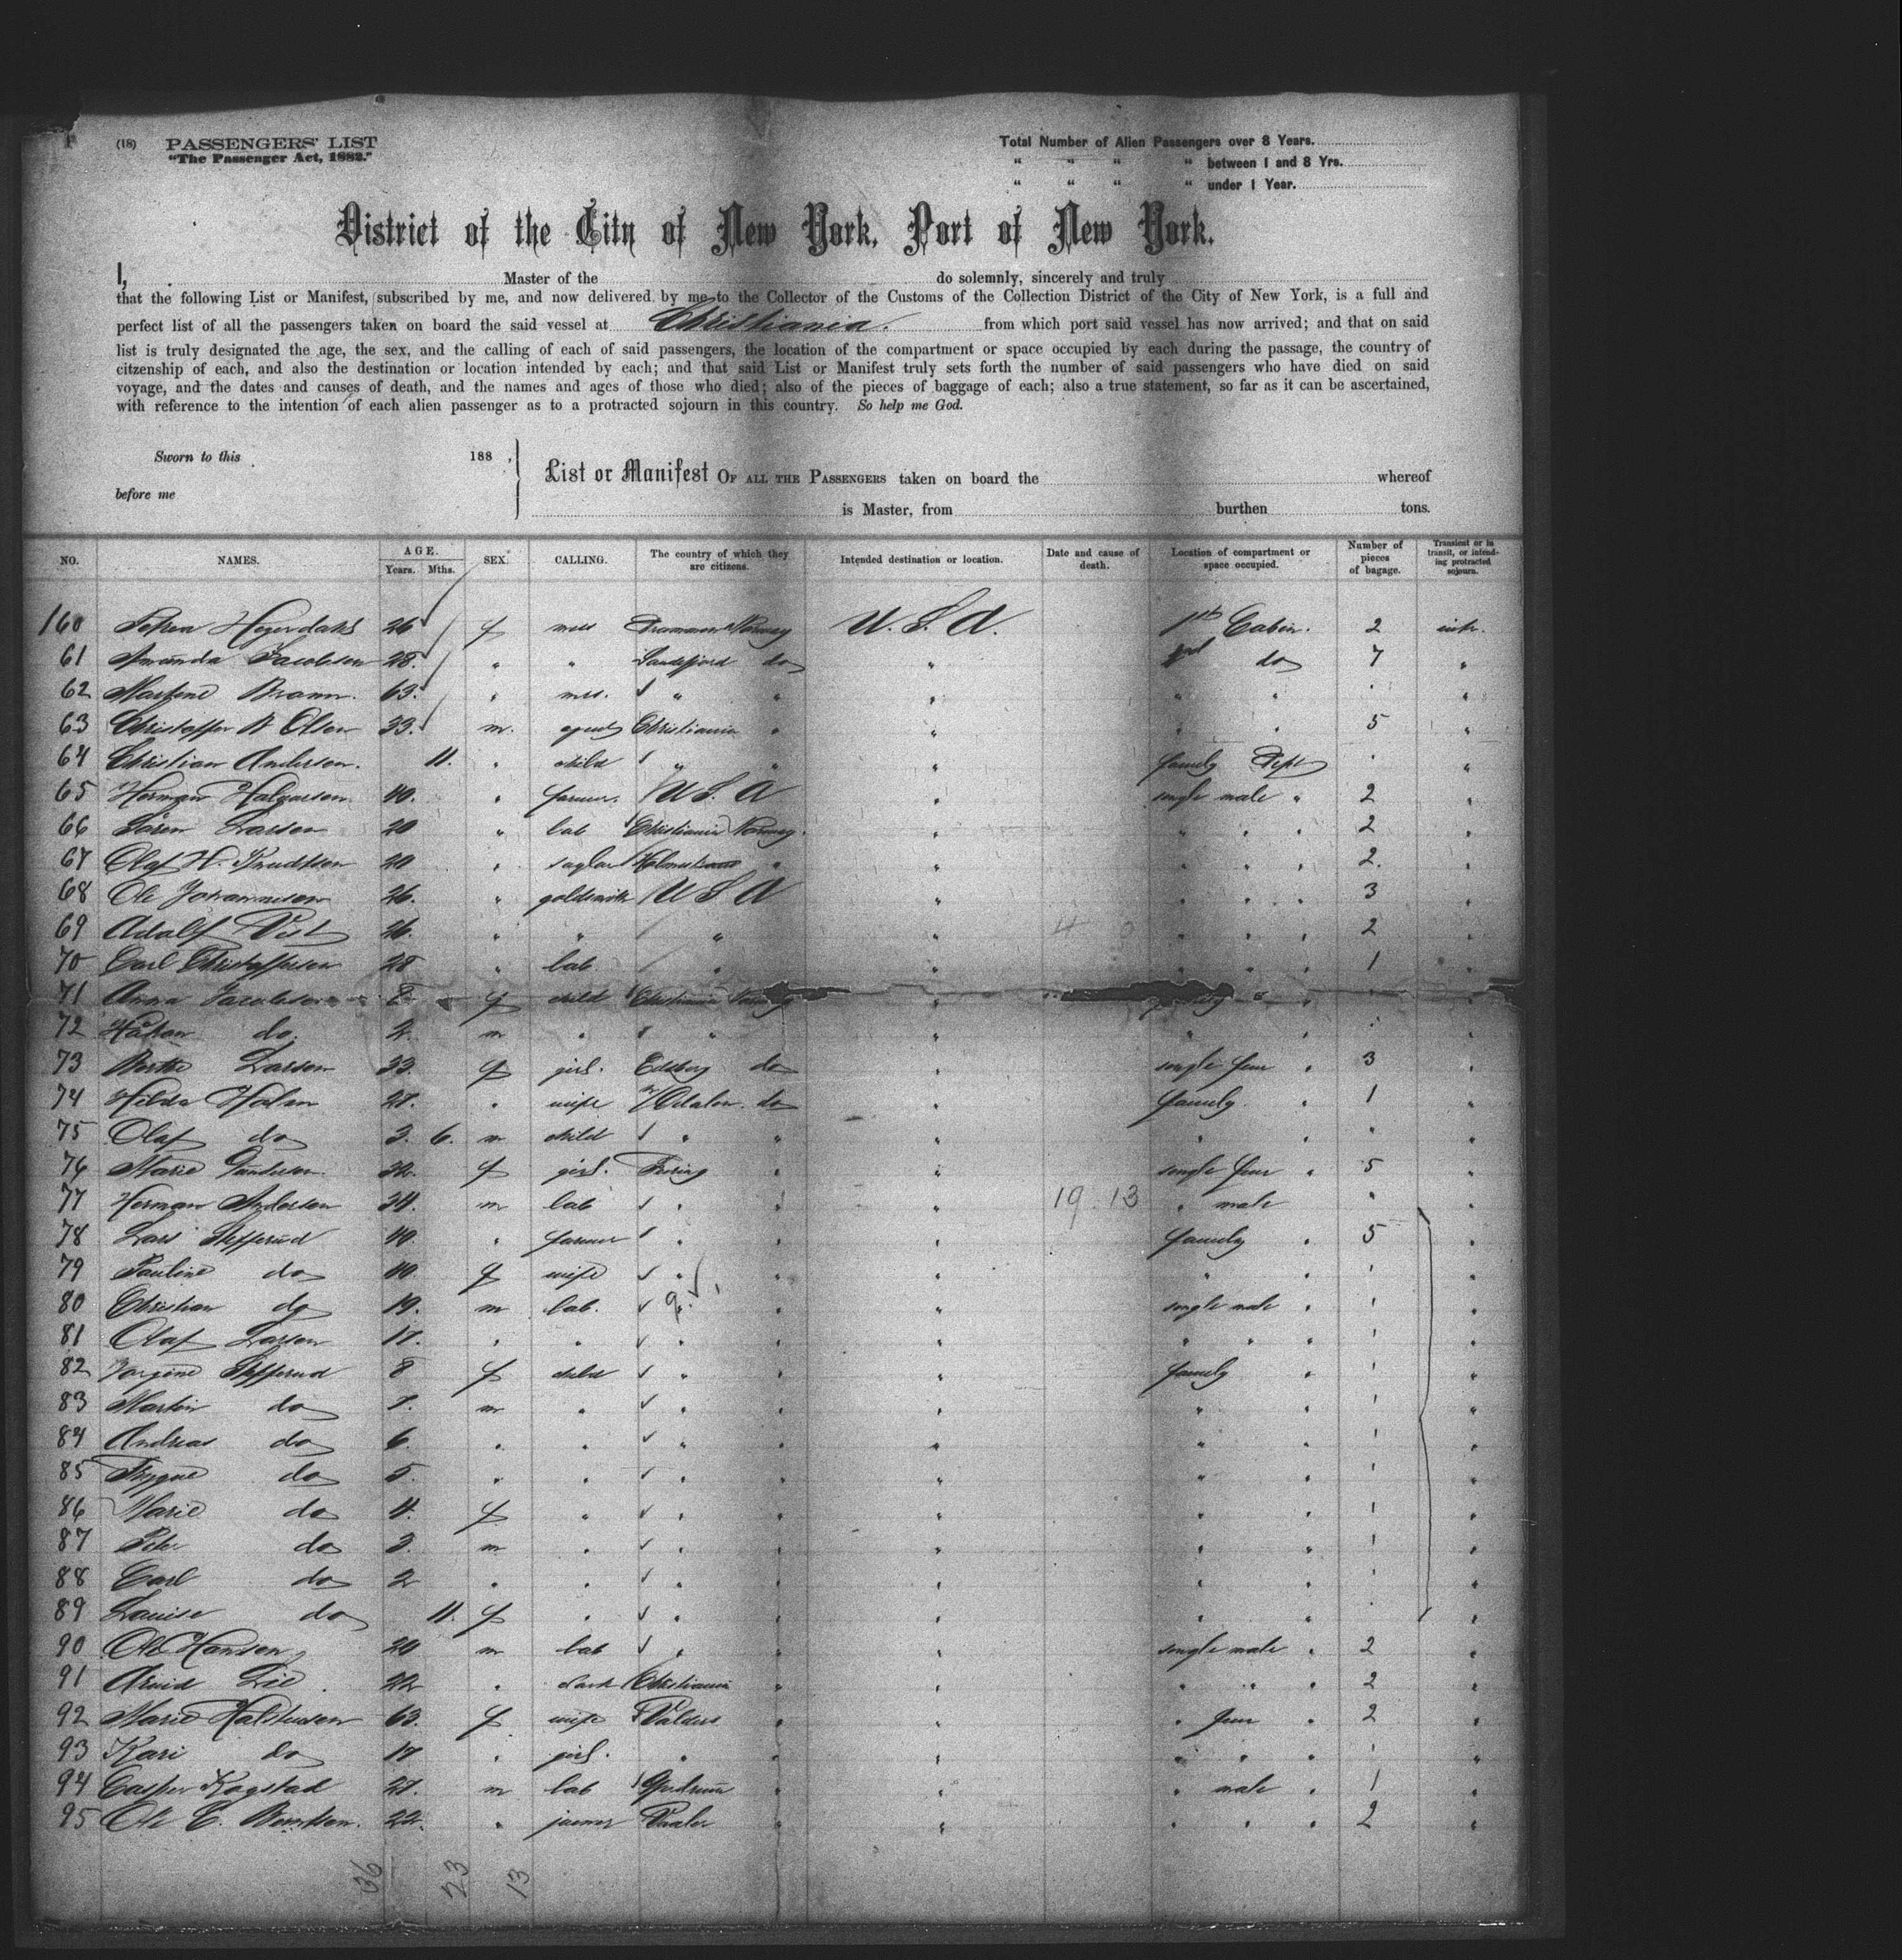 (18) PASSENGERS' LIST
"The Passenger Act, 1882."
Total Number of Alien Passengers over 8 Years.
" " " " between 1 and 8 Yrs.
" " " " under 1 Year.
District of the City of New York, Port of New York.
I, Master of the do solemnly, sincerely and truly
that the following List or Manifest, subscribed by me, and now delivered by me to the Collector of the Customs of the Collection District of the City of New York, is a full and
perfect list of all the passengers taken on board the said vessel at Christiania. from which port said vessel has now arrived; and that on said
list is truly designated the age, the sex, and the calling of each of said passengers, the location of the compartment or space occupied by each during the passage, the country of
citzenship of each, and also the destination or location intended by each; and that said List or Manifest truly sets forth the number of said passengers who have died on said
voyage, and the dates and causes of death, and the names and ages of those who died; also of the pieces of baggage of each; also a true statement, so far as it can be ascertained,
with reference to the intention of each alien passenger as to a protracted sojourn in this country. So help me God.
Sworn to this 188 ,
before me
List or Manifest OF ALL THE PASSENGERS taken on board the whereof
is Master, from burthen tons.
NO. NAMES. AGE. Years. Mths. SEX. CALLING. The country of which they are citizens. Intended destination or location. Date and cause of death. Location of compartment or space occupied. Number of pieces of bagage. Transient or in transit, or intending protracted sojourn.
160 Heyerdahl 26 f Norway U.S.A. 1st Cabin. 2
61 Amanda Jacobsen 28. " " Sandefjord do " do 7 "
62 63. " mrs. " " " " " "
63 Christoffer Olsen 33. m. agent Christiania " " " " 5 "
64 Christian Anderson. 11. " child " " " family Dept "
65 Herman 40. " farmer U.S.A " single male " 2 "
66 Sören Larsen 20 " lab Christiania Norway. " " " " 2 "
67 Olaf H. Knudtsen 20 " " " " " " 2. "
68 Ole Johannesen 26. " goldsmith U S A " " " " 3 "
69 Adolf 26. " " " " " " " 2 "
70 Carl Christoffersen 28 " lab " " " " " 1 "
71 Anna Jacobsen 8 f child Christiania Norway " " " "
72 Håkon do. 2 m " " " " " " "
73 Berthe Larsen 33. f girl. Eidsberg do " single fem " 3 "
74 Hilda Holm 27. " wife Odalen do " family " 1 "
75 Olaf do 3. 6. m child " " " " " " "
76 Marie f girl. " " single fem " 5 "
77 Herman Anderson 24. m lab " " " 19.13 " male " "
78 Lars Stefferud 40. " farmer " " " family " 5 "
79 Pauline do 40. f wife " " " " " " "
80 Christian do 19. m lab. 9. " " single male " " "
81 Olaf Larsen 17. " " " " " " " " " "
82 Jorgine Stefferud 8 f child " " " family " " "
83 Martin do 7. m " " " " " " " "
84 Andreas do 6. " " " " " " " " "
85 Trygve do 5. " " " " " " " " "
86 Marie do 4. f " " " " " " " "
87 Peter do 3. m " " " " " " " "
88 Carl do 2 " " " " " " " " "
89 Louise do 11. f " " " " " " " "
90 Ole Hansen 20 m lab " " " single male " 2 "
91 Arvid Lie 22 " clerk Christiania " " " " " 2 "
92 Marie 63. f wife Valders " " " fem " 2 "
93 Kari do 17 " girl. " " " " " " " "
94 Casper 27. m lab " " " male " 1 "
95 Ole C. 22. " Vaaler " " " " " 2 "
36 23 13